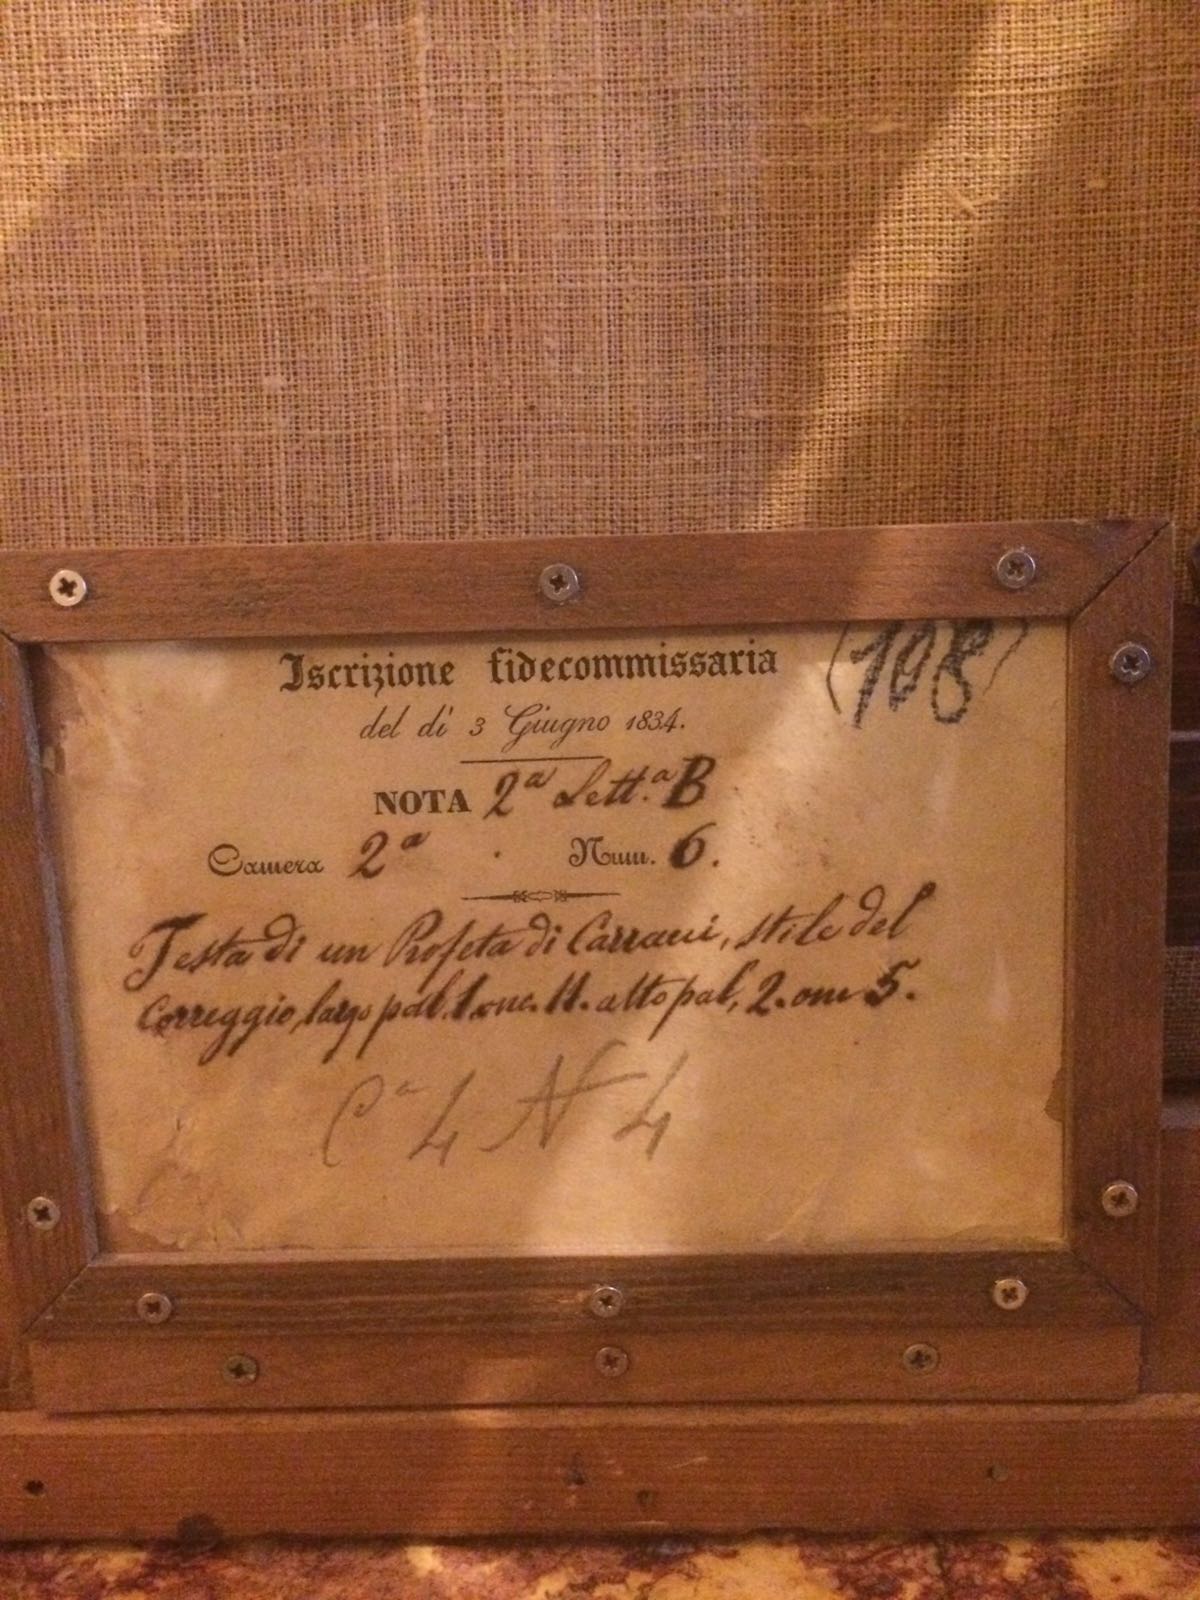 Iscrizione fidecommissaria
(108)
del dì 3 Giugno 1834.
NOTA 2ª Lett.ª B
Camera 2ª . Num. 6.
Testa di un Profeta di Carracci, stile del
Correggio, largo pal. 1. onc. 11. alto pal, 2. onc 5.
Cª 4 N 4